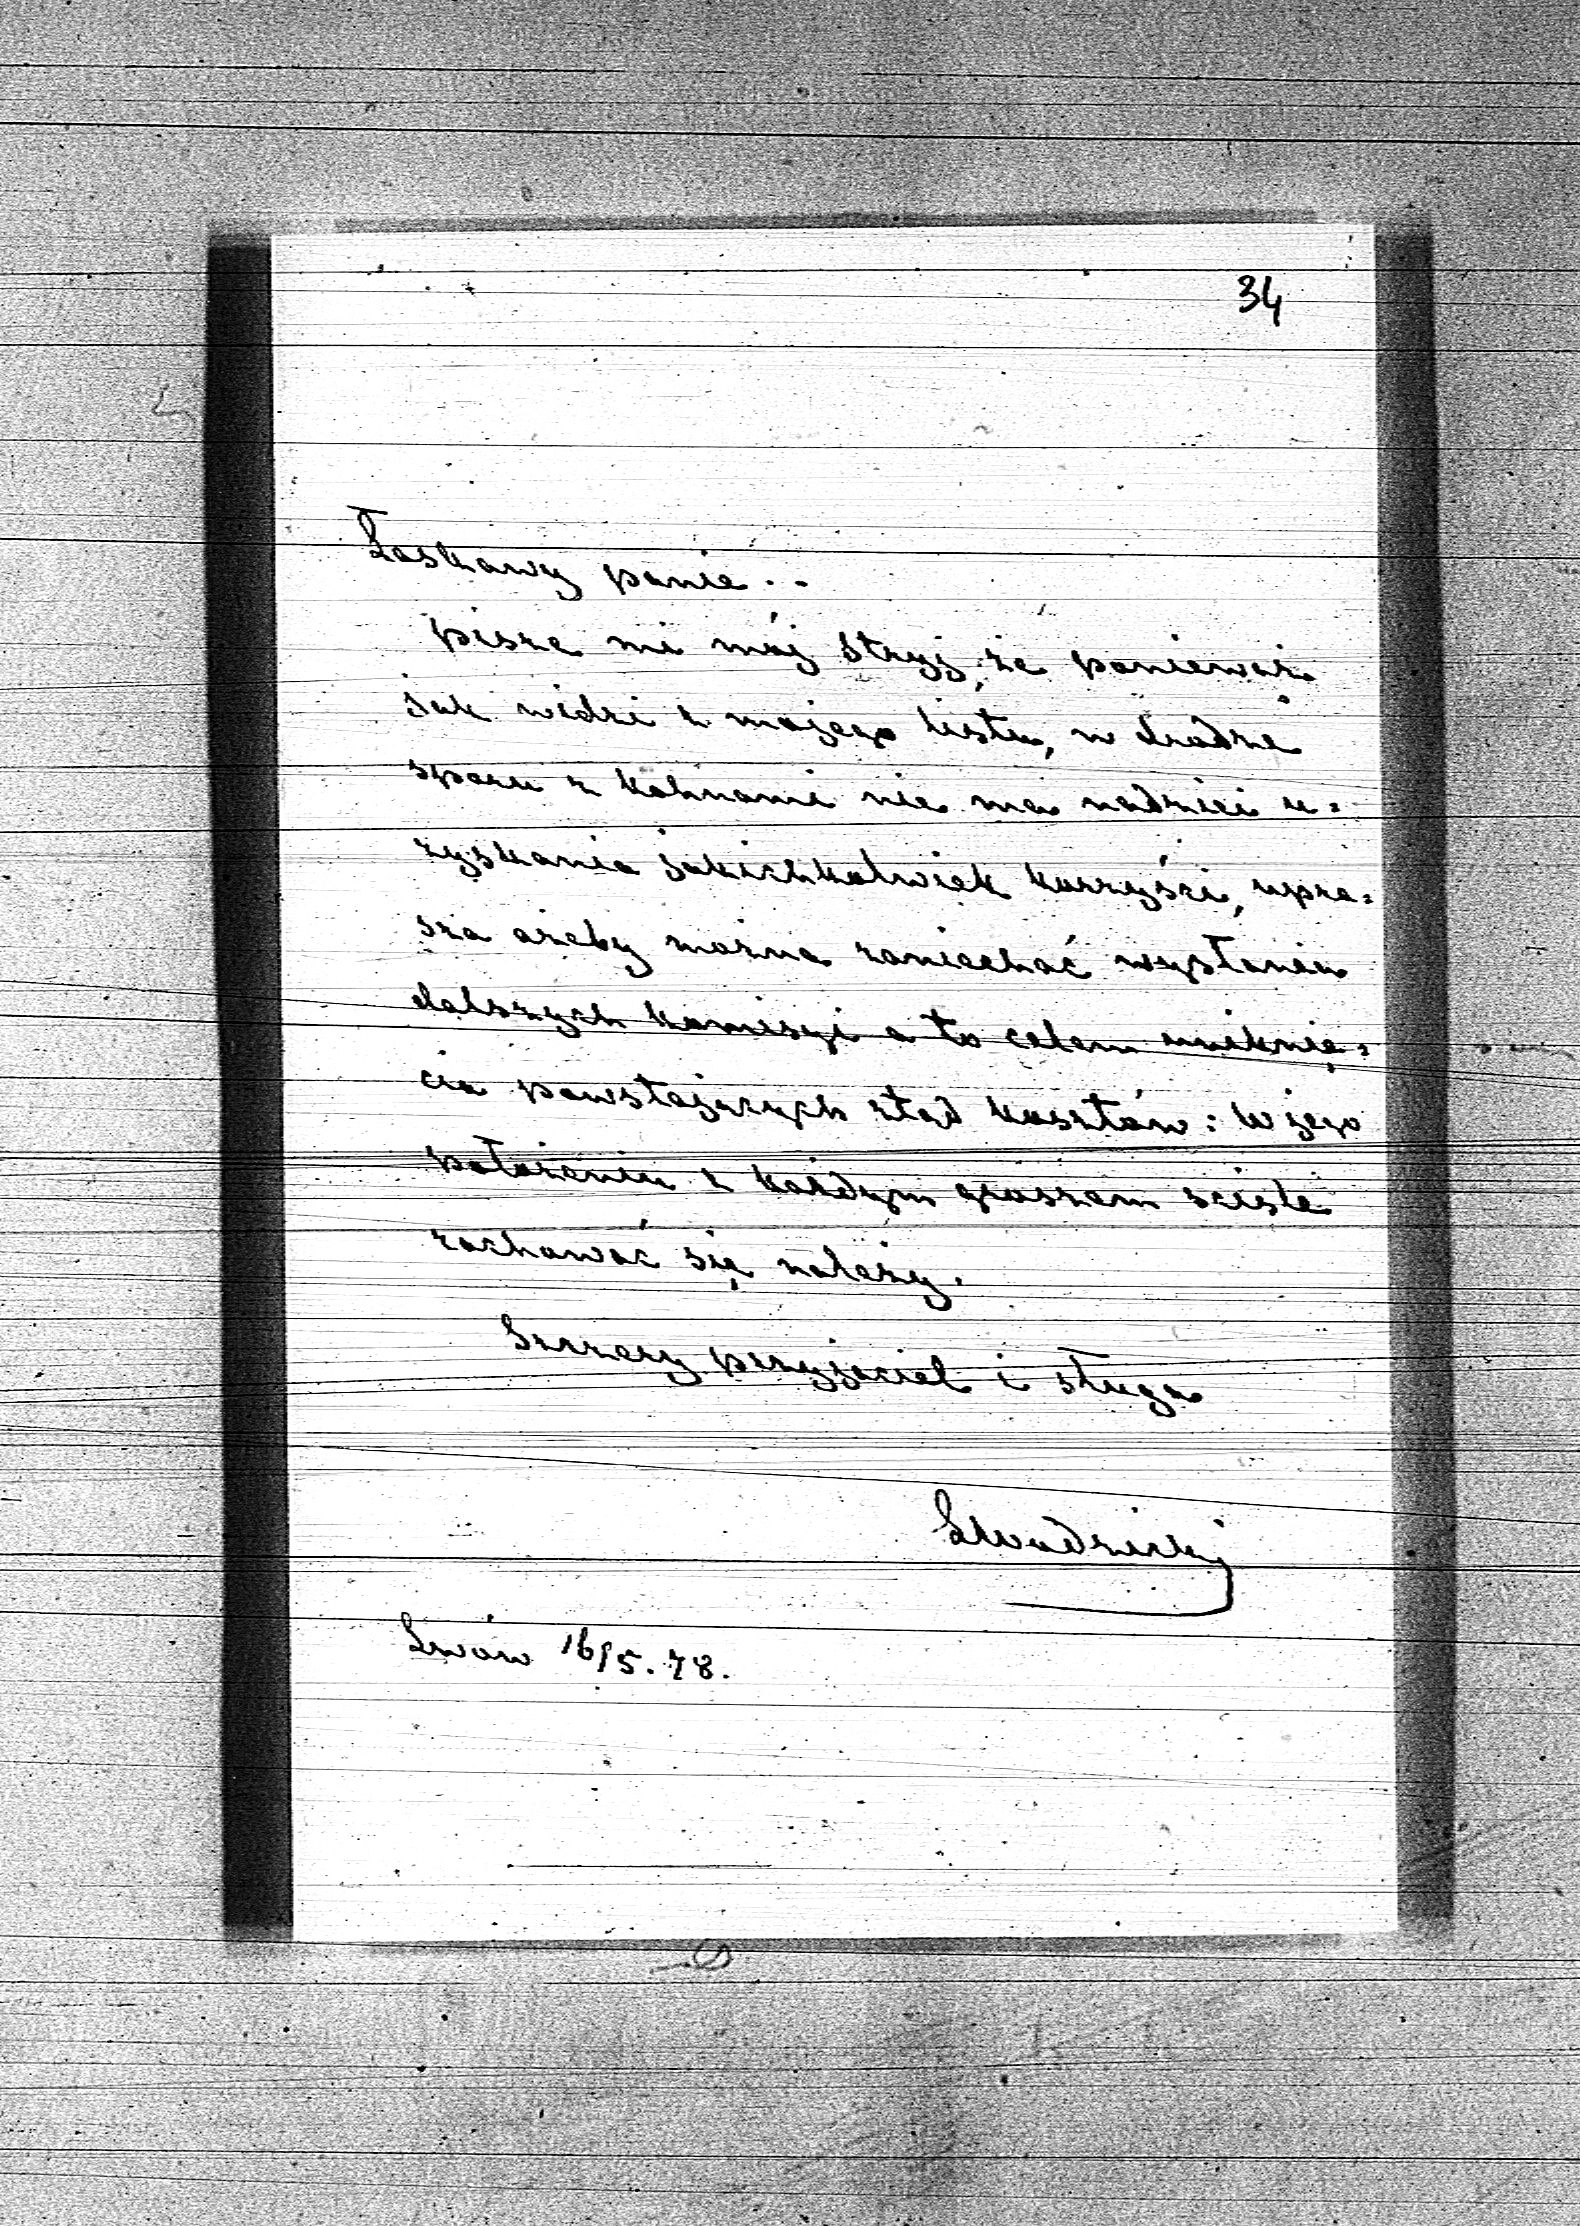 34
Łaskawy panie . .
pisze mi mój stryj, że ponieważ
jak widzi z mojego listu, w drodze
sporu z Kohnami nie ma nadziei u=
zyskania jakichkolwiek korzyści, upra=
sza ażeby można zaniechać wysłaniu
dalszych komisyi a to celem uniknię=
cia powstających ztąd kosztów: W jego
położeniu z każdym groszem sciśle
rachować się należy.
Szczery przyjaciel i sługa
Lwów 16/5. 78.